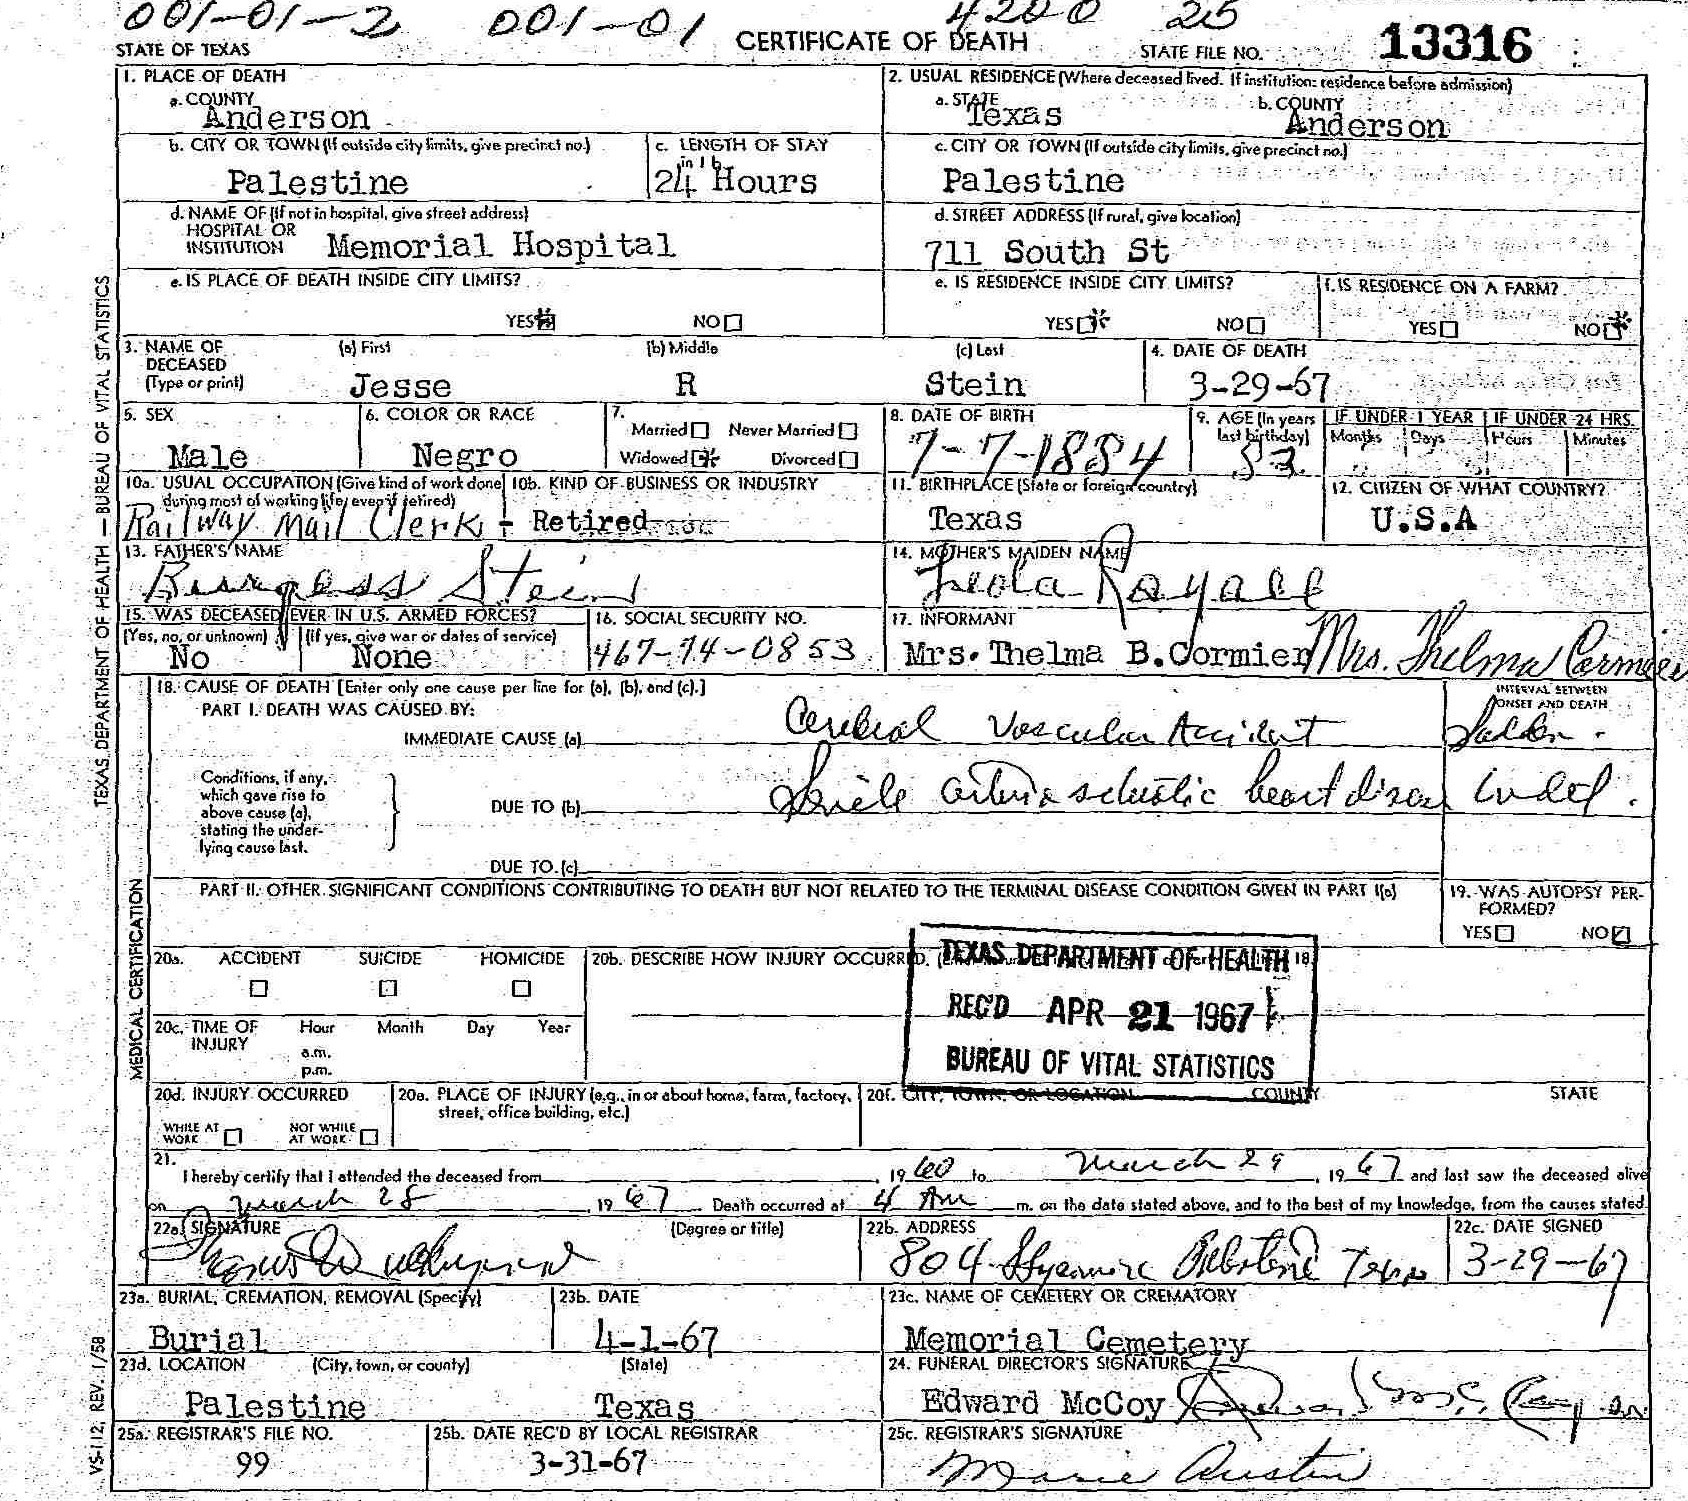 001-01-2 001-01 4200 25
STATE OF TEXAS CERTIFICATE OF DEATH STATE FILE NO. 13316
1. PLACE OF DEATH 2. USUAL RESIDENCE (Where deceased lived. If institution: residence before admission)
a. COUNTY Anderson a. STATE Texas b. COUNTY Anderson
b. CITY OR TOWN (If outside city limits, give precinct no.) c. LENGTH OF STAY in 1b c. CITY OR TOWN (If outside city limits, give precinct no.)
Palestine 24 Hours Palestine
d. NAME OF (If not in hospital, give street address) HOSPITAL OR INSTITUTION d. STREET ADDRESS (If rural, give location)
Memorial Hospital 711 South St
e. IS PLACE OF DEATH INSIDE CITY LIMITS? e. IS RESIDENCE INSIDE CITY LIMITS? f. IS RESIDENCE ON A FARM?
YES NO YES NO YES NO
3. NAME OF DECEASED (Type or print) (a) First (b) Middle (c) Last 4. DATE OF DEATH
Jesse R Stein 3-29-67
5. SEX 6. COLOR OR RACE 7. Married Never Married Widowed Divorced 8. DATE OF BIRTH 9. AGE (In years last birthday) IF UNDER 1 YEAR IF UNDER 24 HRS.
Months Days Hours Minutes
Male Negro 7-7-1884
10a. USUAL OCCUPATION (Give kind of work done during most of working life, even if retired) 10b. KIND OF BUSINESS OR INDUSTRY 11. BIRTHPLACE (State or foreign country) 12. CITIZEN OF WHAT COUNTRY?
Railway Mail Clerk - Retired Texas U.S.A
13. FATHER'S NAME 14. MOTHER'S MAIDEN NAME
Burgess Stein Leola Royall
15. WAS DECEASED EVER IN U.S. ARMED FORCES? 16. SOCIAL SECURITY NO. 17. INFORMANT
(Yes, no, or unknown) (If yes, give war or dates of service)
No None 467-74-0853 Mrs. Thelma B. Cormier Mrs. Thelma Cormier
18. CAUSE OF DEATH [Enter only one cause per line for (a), (b), and (c).] INTERVAL BETWEEN ONSET AND DEATH
PART I. DEATH WAS CAUSED BY:
IMMEDIATE CAUSE (a) Cerebral Vascular Accident Sudden
Conditions, if any, which gave rise to above cause (a), stating the underlying cause last.
DUE TO (b) Senile arteriosclerotic heart disease Indef.
DUE TO (c)
PART II. OTHER SIGNIFICANT CONDITIONS CONTRIBUTING TO DEATH BUT NOT RELATED TO THE TERMINAL DISEASE CONDITION GIVEN IN PART I(a) 19. WAS AUTOPSY PERFORMED?
YES NO
20a. ACCIDENT SUICIDE HOMICIDE 20b. DESCRIBE HOW INJURY OCCURRED.
TEXAS DEPARTMENT OF HEALTH
REC'D APR 21 1967
BUREAU OF VITAL STATISTICS
20c. TIME OF INJURY Hour Month Day Year
a.m.
p.m.
20d. INJURY OCCURRED 20e. PLACE OF INJURY (e.g., in or about home, farm, factory, street, office building, etc.) 20f. CITY, TOWN, OR LOCATION COUNTY STATE
WHILE AT WORK NOT WHILE AT WORK
21. I hereby certify that I attended the deceased from , 1960 to March 29, 1967 and last saw the deceased alive
on March 28, 1967. Death occurred at 4 AM m. on the date stated above, and to the best of my knowledge, from the causes stated.
22a. SIGNATURE (Degree or title) 22b. ADDRESS 22c. DATE SIGNED
804 Sycamore Palestine Texas 3-29-67
23a. BURIAL, CREMATION, REMOVAL (Specify) 23b. DATE 23c. NAME OF CEMETERY OR CREMATORY
Burial 4-1-67 Memorial Cemetery
23d. LOCATION (City, town, or county) (State) 24. FUNERAL DIRECTOR'S SIGNATURE
Palestine Texas Edward McCoy
25a. REGISTRAR'S FILE NO. 25b. DATE REC'D BY LOCAL REGISTRAR 25c. REGISTRAR'S SIGNATURE
99 3-31-67 Marie Austin
TEXAS DEPARTMENT OF HEALTH — BUREAU OF VITAL STATISTICS
MEDICAL CERTIFICATION
VS-112, REV. 1/58